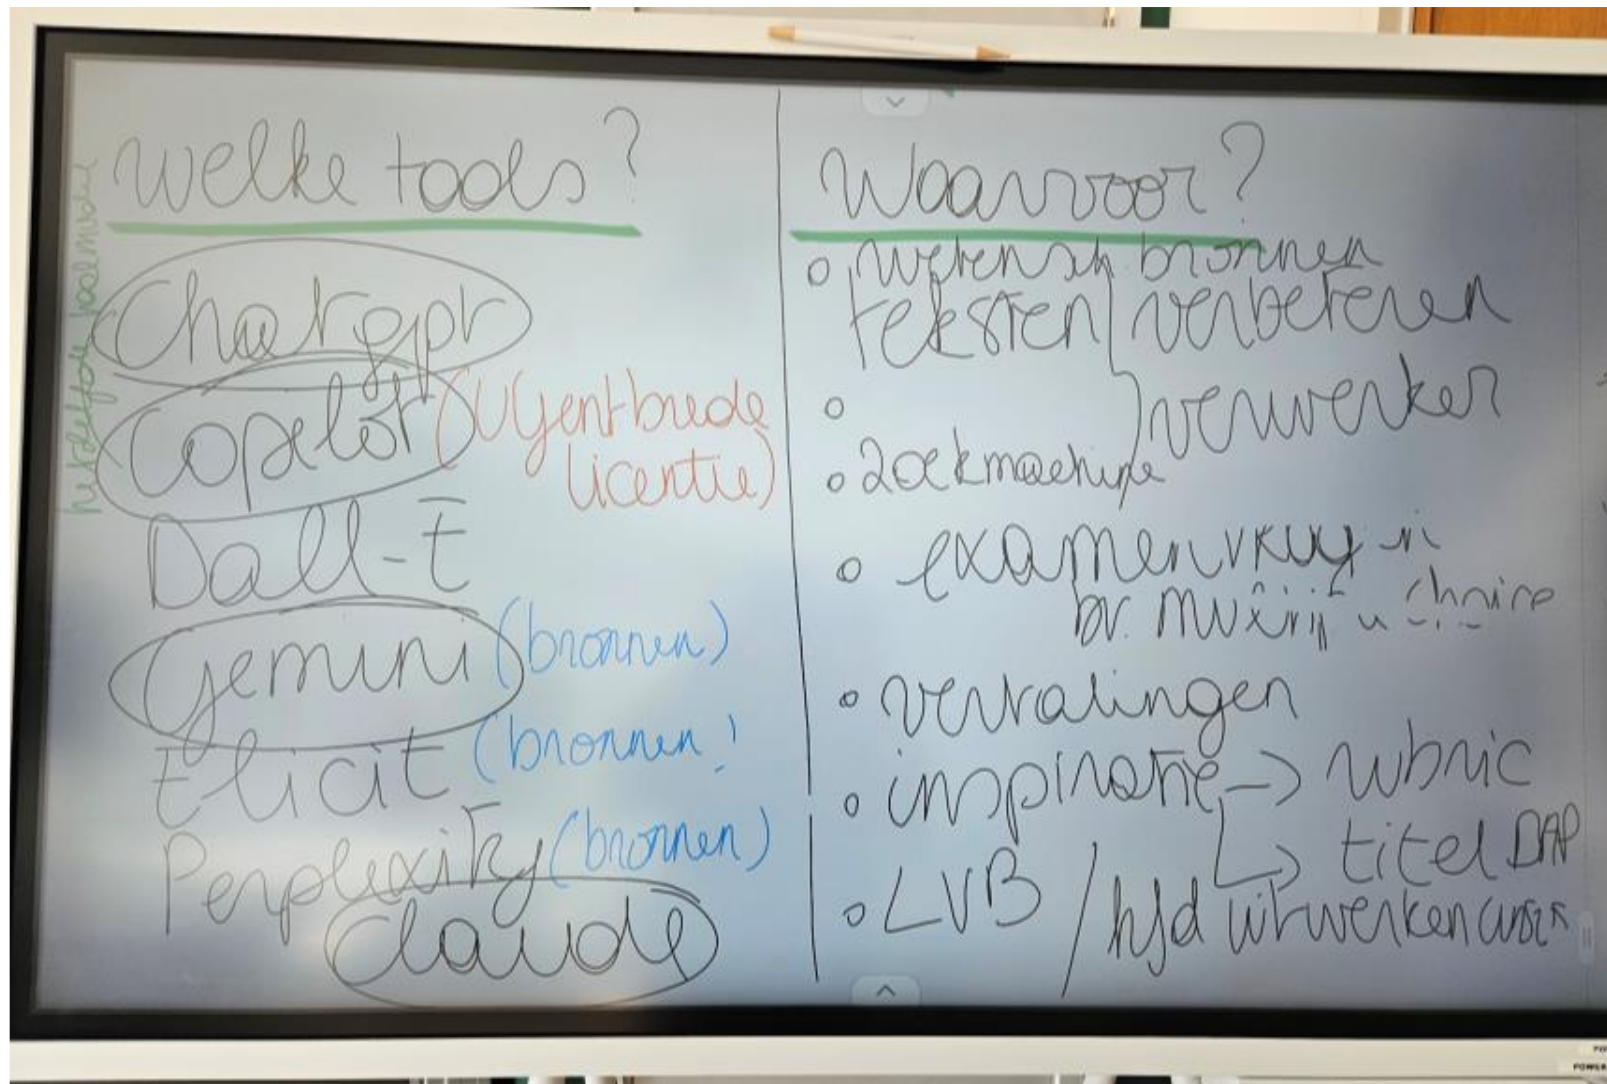 Welke tools?
hetzelfde taalmodel
Chatgpt
Copilot (UGentbrede
licentie)
Dall-E
Gemini (bronnen)
Elicit (bronnen!
Perplexity (bronnen)
Claude
Waarvoor?
o wetensch bronnen
teksten verbeteren
o verwerken
o zoekmachine
o examenvrag
bv.
o vertalingen
o inspiratie → rubric
→ titel BAP
o LVB / hfd uitwerken cursus
POWER